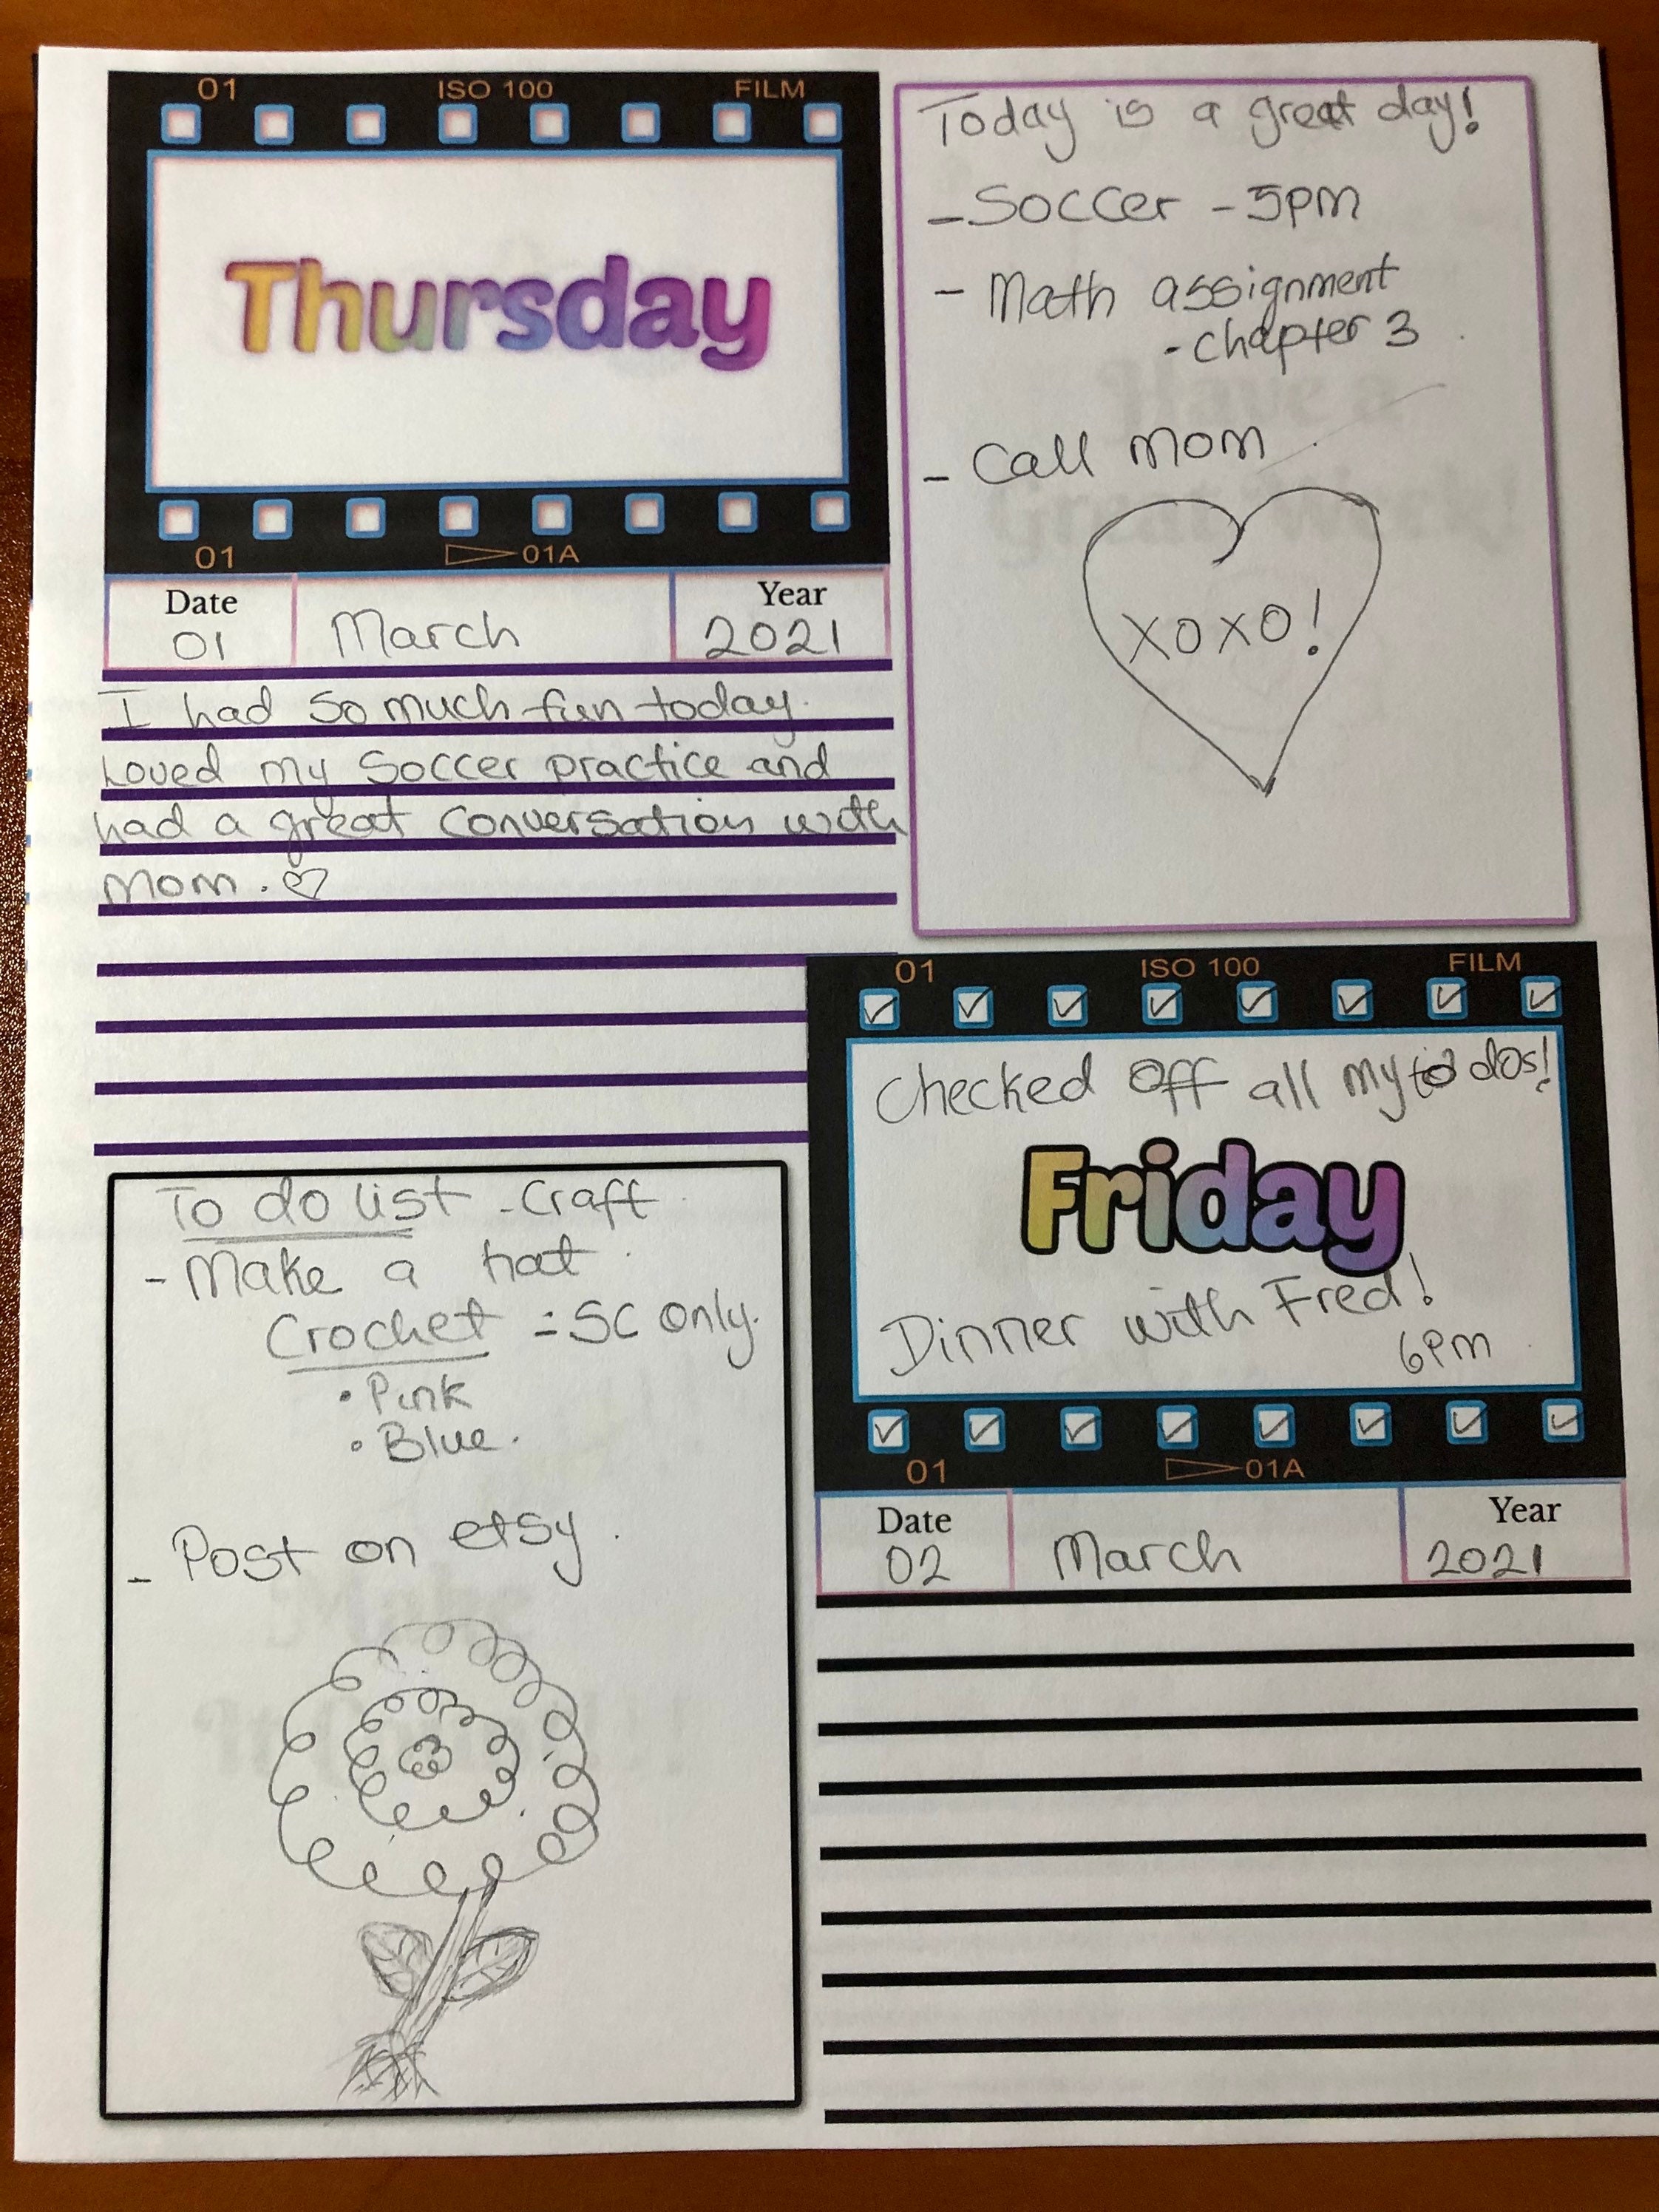 01 ISO 100 FILM
Thursday
01 01A
Date Year
01 March 2021
I had so much fun today.
Loved my Soccer practice and
had a great conversation with
mom.
Today is a great day!
- Soccer - 5pm
- Math assignment
- chapter 3
- Call mom
XOXO!
01 ISO 100 FILM
Checked off all my to dos!
Friday
Dinner with Fred!
6pm
01 01A
Date Year
02 March 2021
To do list - Craft
- Make a hat
Crochet = SC only.
• Pink
• Blue.
- Post on etsy.